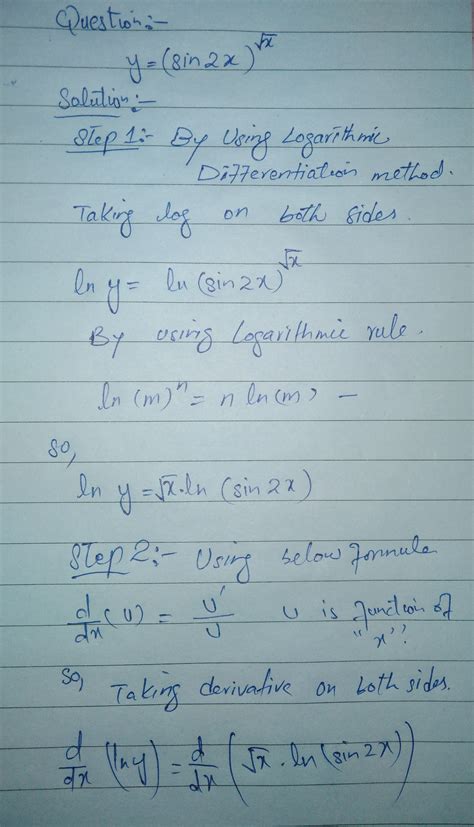 Question:-
y = (sin2x)^√x
Solution:-
Step 1:- By Using Logarithmic
Differentiation method.
Taking log on both sides.
ln y = ln (sin2x)^√x
By using Logarithmic rule.
ln (m)^n = n ln(m) -
so,
ln y = √x.ln (sin 2x)
Step 2:- Using below formula
d/dx (U) = U'/U U is function of
"x"?
So, Taking derivative on both sides.
d/dx (ln y) = d/dx (√x . ln (sin2x))